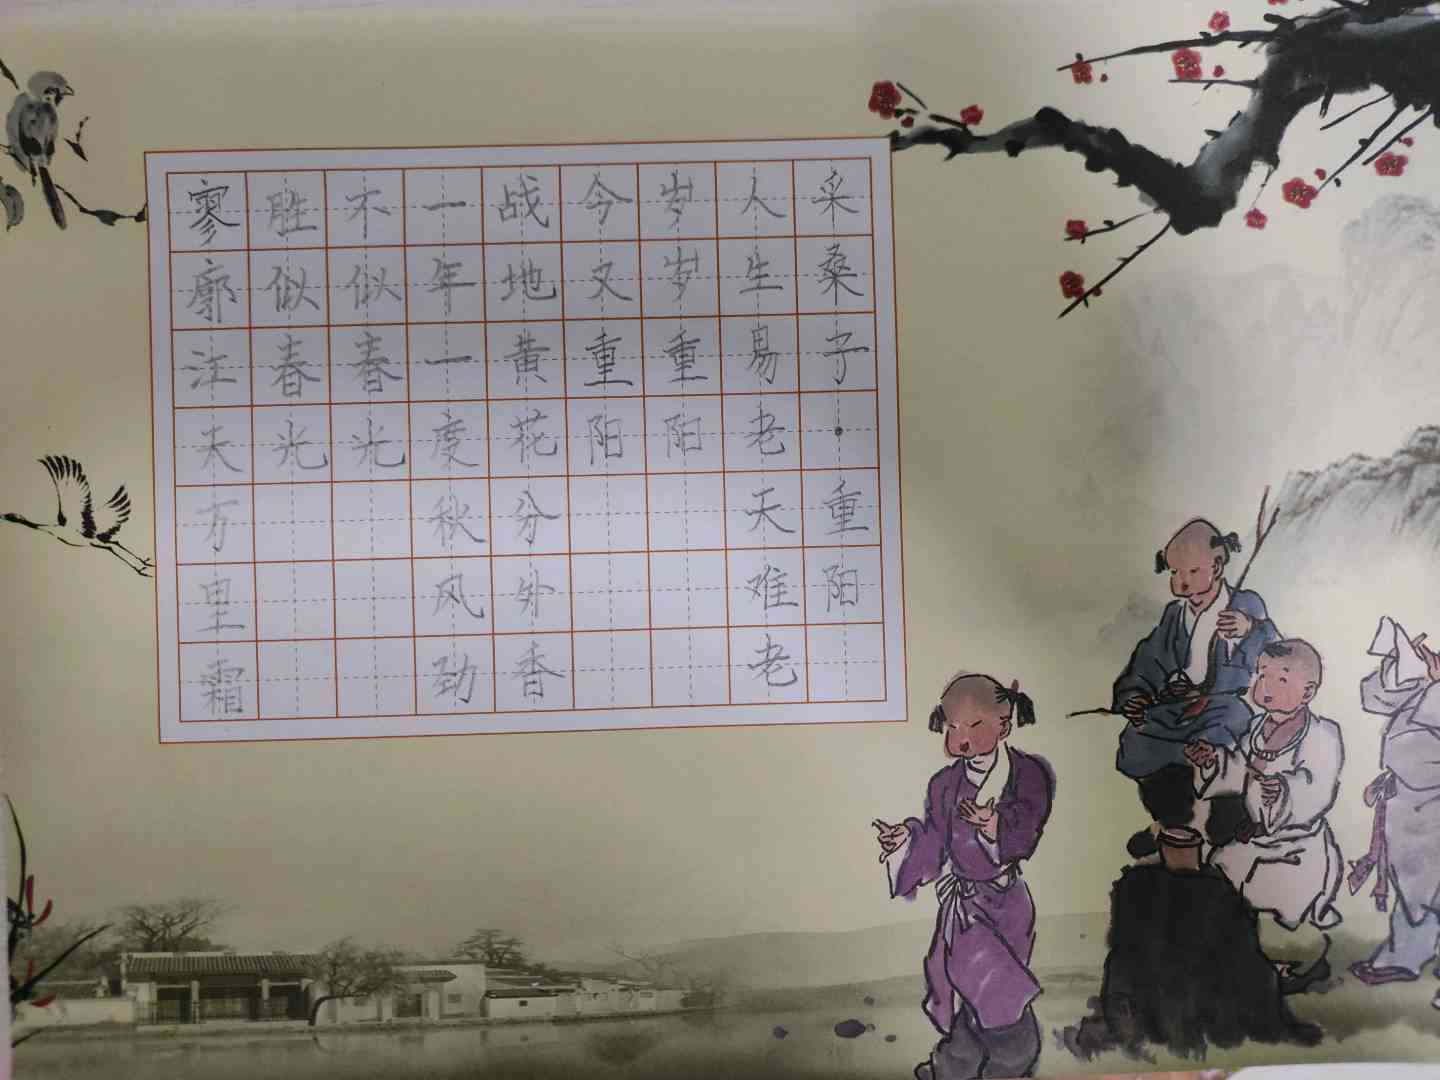 采桑子·重阳
人生易老天难老
岁岁重阳
今又重阳
战地黄花分外香
一年一度秋风劲
不似春光
胜似春光
寥廓江天万里霜